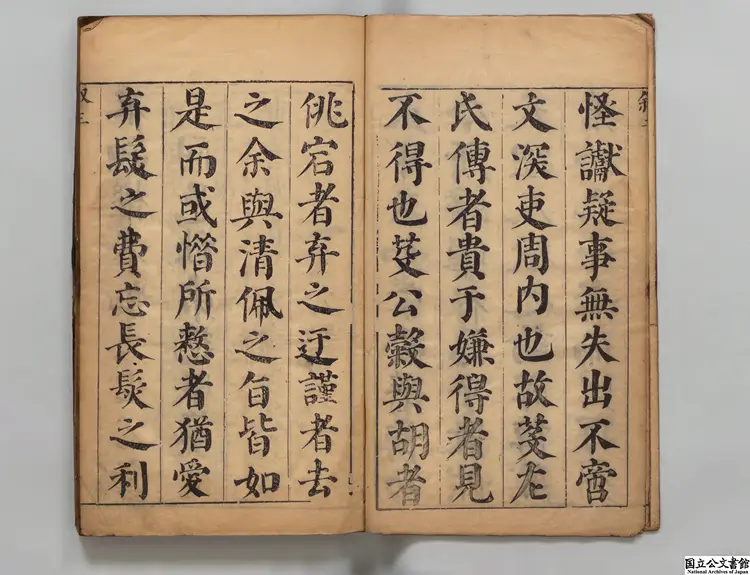 怪讞疑事無失出不啻
文深吏周内也故芟左
氏傳者貴于嫌得者見
不得也芟公穀與胡者
佻宕者弃之迂謹者去
之余與清佩之旨皆如
是而或憯所憗者猶愛
弃髮之費忘長髮之利
叙三
国立公文書館
National Archives of Japan